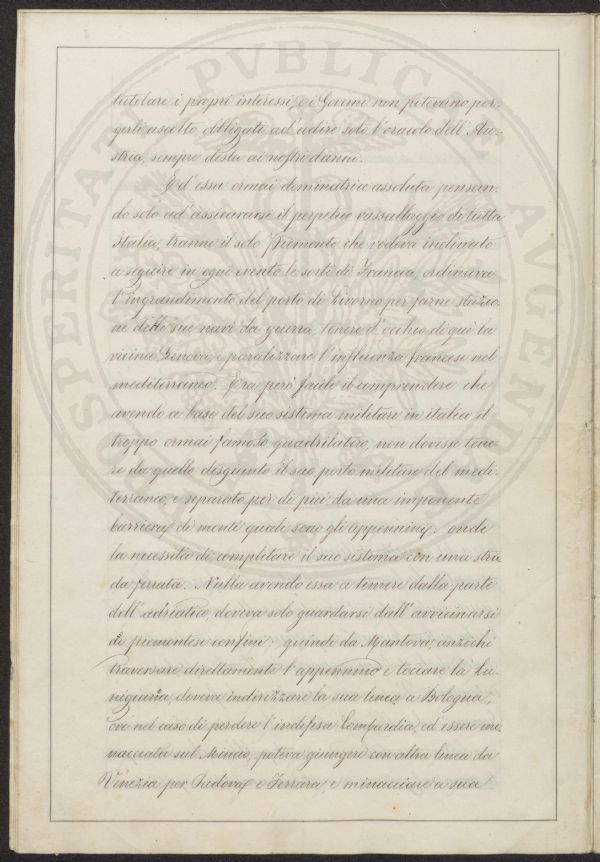 tutelare i propri interessi, e i Governi non potevano por-
gerli ascolto, obbligati ad udire solo l'oracolo dell'Au-
stria, sempre desta ai nostri danni.
Ed essa ormai dominatrice assoluta pensan-
do solo ad assicurarsi il perpetuo vassallaggio di tutta
Italia, tranne il solo Piemonte che vedeva inclinato
a seguire in ogni evento le sorti di Francia, ordinava
l'ingrandimento del porto di Livorno per farne stazio-
ne delle sue navi da guerra, tenere d'occhio di qui la
vicina Genova, e paralizzare l'influenza francese nel
mediterraneo. Era però facile il comprendere che
avendo a base del suo sistema militare in italia il
troppo ormai famoso quadrilatero, non dovesse tene-
re da quello disgiunto il suo porto militare del medi-
terraneo, e separato per di più da una imponente
barriera di monti quali sono gli appennini: onde
la necessità di completare il suo sistema con una stra
da ferrata. Nulla avendo essa a temere dalla parte
dell'adriatico, doveva solo guardarsi dall'avvicinarsi
ai piemontesi confini: quindi da Mantova, anzichè
traversare direttamente l'appennino e toccare la Lu-
nigiana, doveva indirizzare la sua linea a Bologna,
ove nel caso di perdere l'indifesa Lombardia, ed essere mi-
nacciata sul Mincio, poteva giungere con altra linea da
Venezia per Padova e Ferrara, e minacciare a sua
PROSPERITATI PVBLICAE AVGENDAE